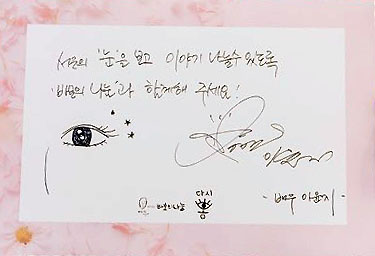 서로의 '눈'을 보고 이야기 나눌수 있도록
'바보의 나눔'과 함께해 주세요!
다시
바보의나눔
- 배우 이윤지 -